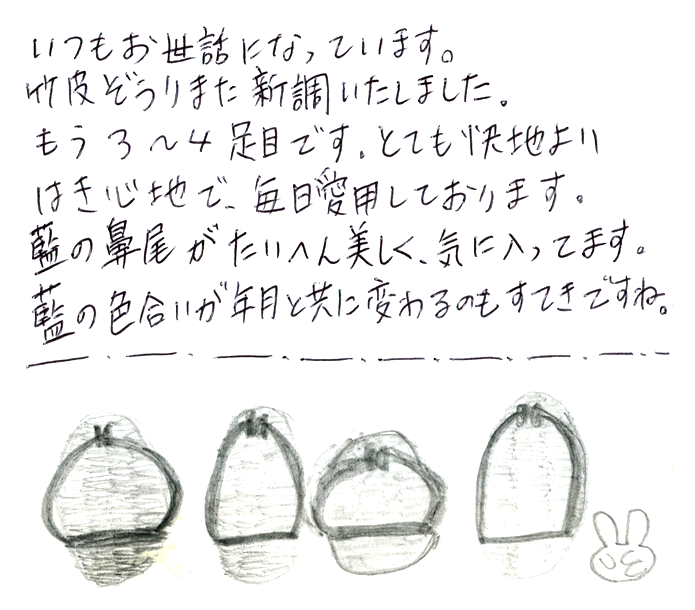 いつもお世話になっています。
竹皮ぞうりまた新調いたしました。
もう3〜4足目です。とても快地より
はき心地で、毎日愛用しております。
藍の鼻尾がたいへん美しく、気に入ってます。
藍の色合いが年月と共に変わるのもすてきですね。